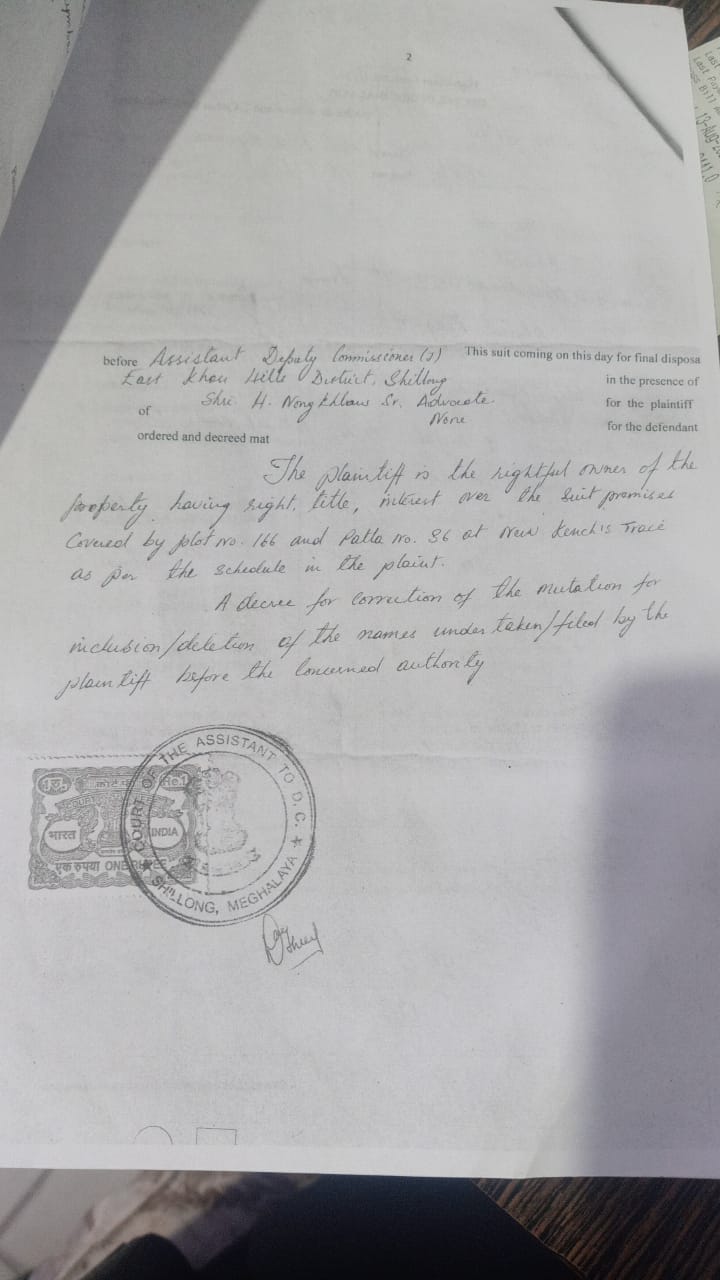 2
This suit coming on this day for final disposa
before Assistant Deputy Commissioner (J)
East Khasi Hills District, Shillong in the presence of
of Shri H. Nongkhlaw Sr. Advocate. for the plaintiff
None for the defendant
ordered and decreed mat
The plaintiff is the rightful owner of the
property having right, title, interest over the suit premises
Covered by plot no. 166 and Patta no. 36 at New Kench's Trace
as per the schedule in the plaint.
A decree for correction of the mutation for
inclusion/deletion of the names under taken/filed by the
plaintiff before the concerned authority
COURT OF THE ASSISTANT TO D.C. ★
SHILLONG, MEGHALAYA ★
1रु. Re.1
भारत INDIA
एक रुपया ONE RUPEE